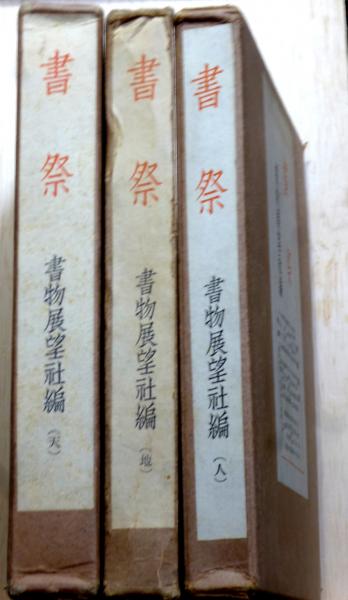 書祭
書物展望社編
（天）
書祭
書物展望社編
（地）
書祭
書物展望社編
（人）